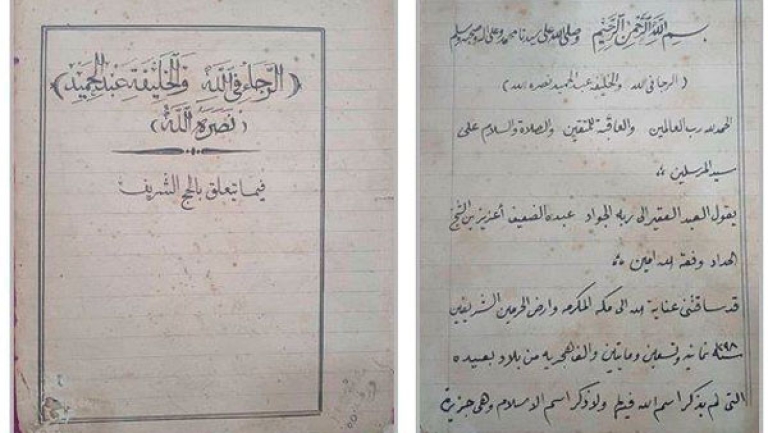 (الرجاء في الله والخليفة عبد الحميد)
(نصره الله)
فيما يتعلق بالحج الشريف
بسم الله الرحمن الرحيم وصلى الله على سيدنا محمد وعلى اله وصحبه وسلم
(الرجا في الله والخليفه عبد الحميد نصره الله)
الحمد لله رب العالمين والعاقبة للمتقين والصلاة والسلام على
سيد المرسلين
يقول العبد الفقير الى ربه الجواد عبده الضعيف أعزيز بن الشيخ
الحداد وفقه الله امين
قد ساقتنى عناية الله الى مكه المكرمه وارض الحرمين الشريفين
سنة ١٢٩٨ ثمانية وتسعين ومايتين والف هجريه من بلاد بعيده
التي لم يذكر اسم الله فيها ولا ذكر اسم الاسلام وهى جزيرة